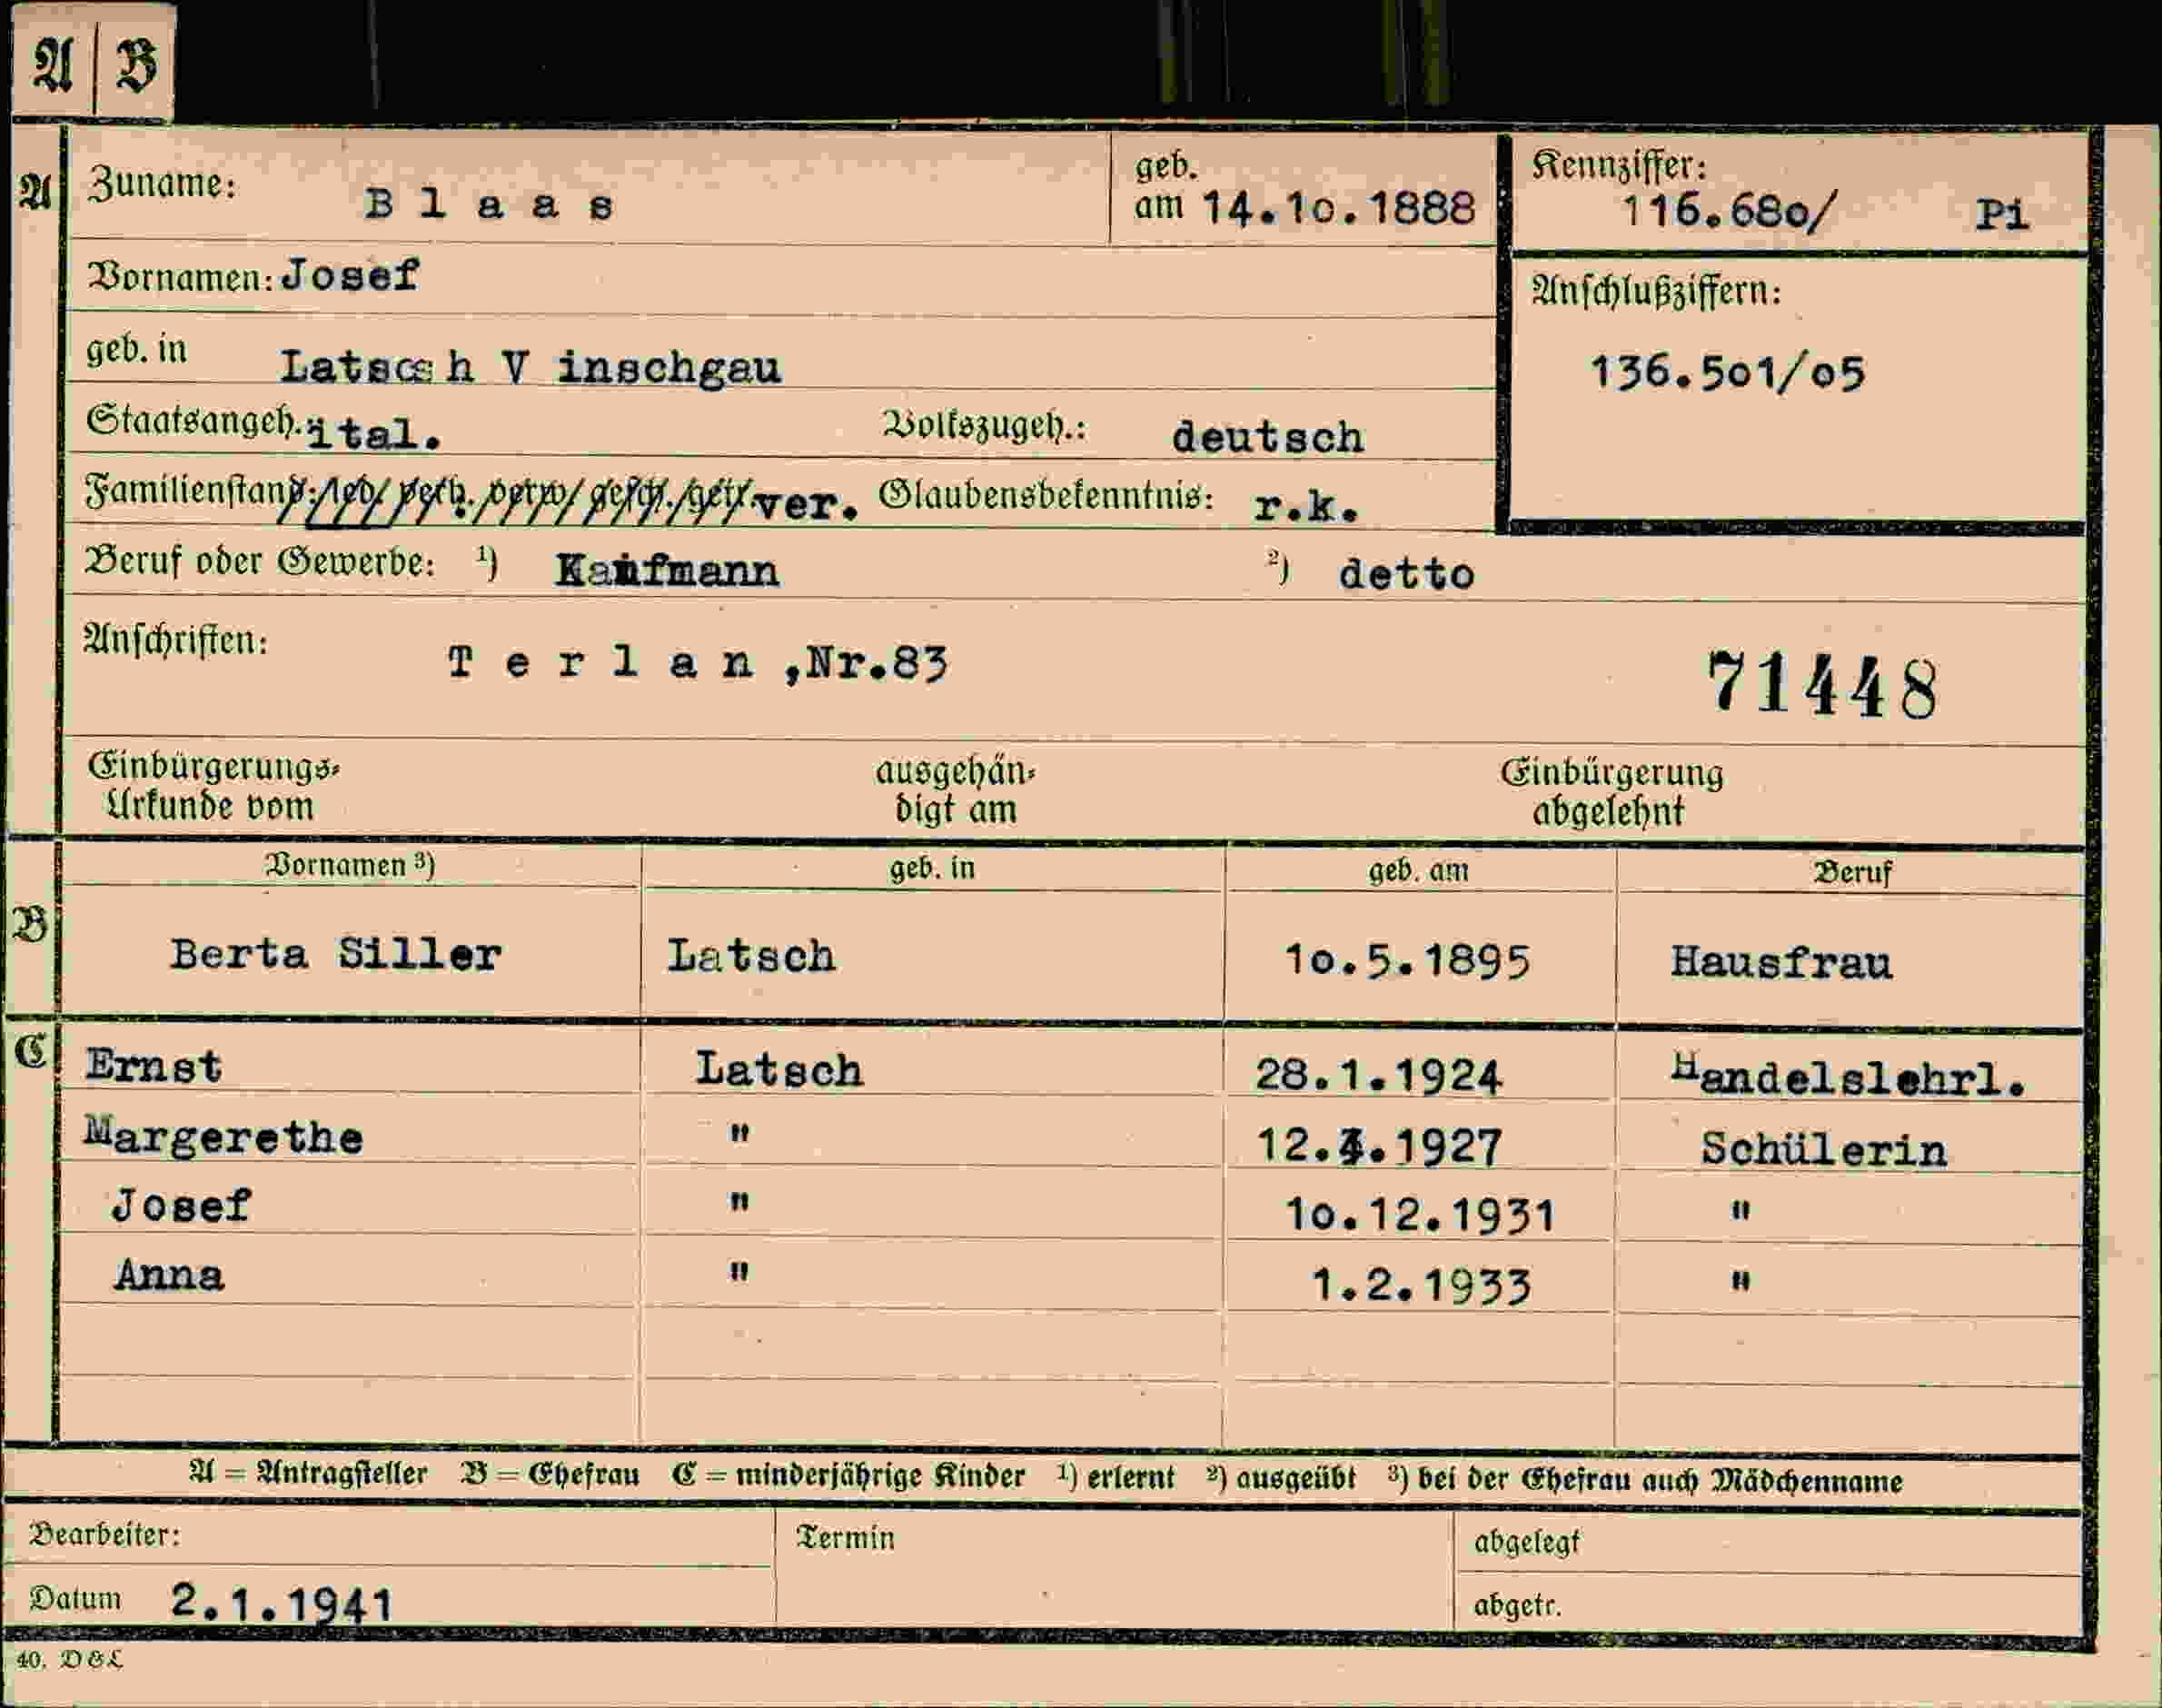 A | B
A Zuname: B l a a s geb. am 14.10.1888 Kennziffer: 116.680/ Pi
Vornamen: Josef Anschlußziffern:
geb. in Latsch V inschgau 136.501/05
Staatsangeh. ital. Volkszugeh.: deutsch
Familienstand: led/ verh. verw/ gesch./ ver. Glaubensbekenntnis: r.k.
Beruf oder Gewerbe: 1) Kaufmann 2) detto
Anschriften: T e r l a n ,Nr.83 71448
Einbürgerungs- ausgehän- Einbürgerung
Urkunde vom digt am abgelehnt
Vornamen 3) geb. in geb. am Beruf
B Berta Siller Latsch 10.5.1895 Hausfrau
C Ernst Latsch 28.1.1924 Handelslehrl.
Margerethe " 1927 Schülerin
Josef " 10.12.1931 "
Anna " 1.2.1933 "
A = Antragsteller B = Ehefrau C = minderjährige Kinder 1) erlernt 2) ausgeübt 3) bei der Ehefrau auch Mädchenname
Bearbeiter: Termin abgelegt
Datum 2.1.1941 abgetr.
40. D&L